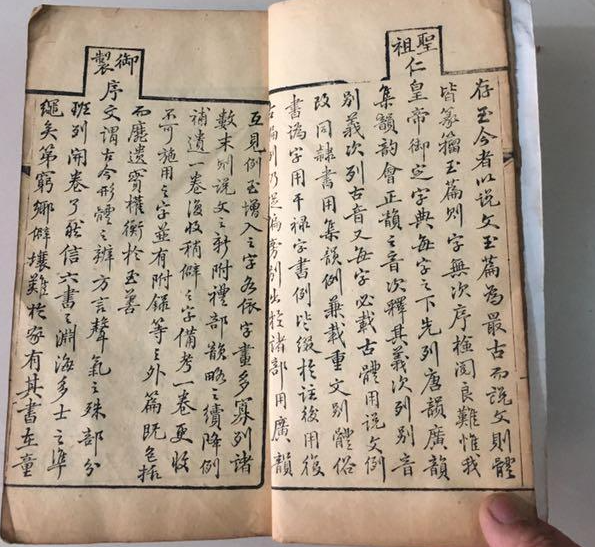 存至今者以説文玉篇為最古而説文則體
皆篆籀玉篇則字無次序檢閲良難惟我
聖祖仁皇帝御定字典每字之下先列唐韻廣韻
集韻韵會正韻之音次釋其義次列別音
別義次列古音又每字必載古體用説文例
改同隸書用集韻例兼載重文別體俗
書譌字用干禄字書例皆綴於註後用復
古編例乃從偏旁別出於諸部用廣韻
互見例至增入之字各依字畫多寡列諸
數末則説文之新附禮部韻略之續降例
補遺一卷後收稍僻之字備考一卷更收
不可施用之字並有附録等之外篇既包括
而靡遺實權衡於至善
御製序文謂古今形體之辨方言聲氣之殊部分
班列開卷了然信六書之淵海多士之準
繩矣第窮鄉僻壤難於家有其書在童